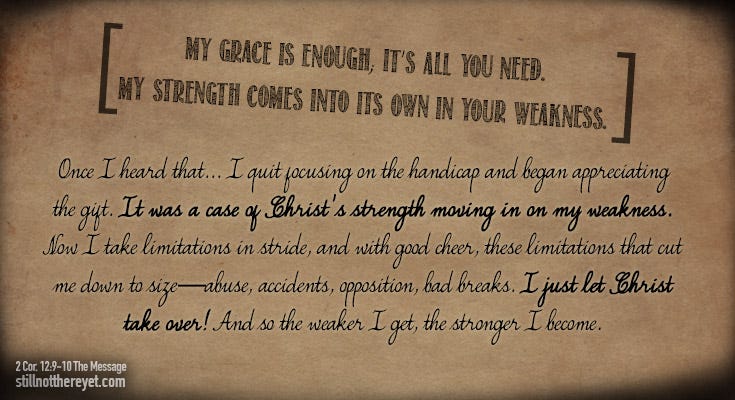 MY GRACE IS ENOUGH; IT'S ALL YOU NEED.
MY STRENGTH COMES INTO ITS OWN IN YOUR WEAKNESS.
Once I heard that... I quit focusing on the handicap and began appreciating
the gift. It was a case of Christ's strength moving in on my weakness.
Now I take limitations in stride, and with good cheer, these limitations that cut
me down to size—abuse, accidents, opposition, bad breaks. I just let Christ
take over! And so the weaker I get, the stronger I become.
2 Cor. 12:9-10 The Message
stillnotthereyet.com